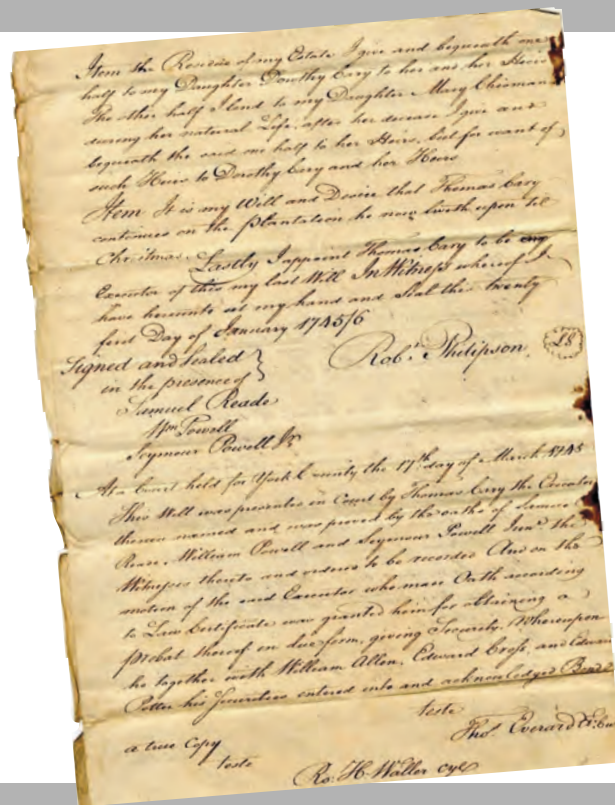 Item the Residue of my Estate I give and bequeath one
half to my Daughter Dorothy Cary to her and her Heirs
The other half I lend to my Daughter Mary Chisman
during her natural Life, after her decease I give and
bequeath the said one half to her Heirs, but for want of
such Heirs to Dorothy Cary and her Heirs
Item It is my Will and Desire that Thomas Cary
continues on the Plantation he now liveth upon til
Christmas. Lastly I appoint Thomas Cary to be my
Executor of this my last Will In Witness whereof I
have hereunto set my hand and Seal this twenty
first Day of January 1745/6
Robt. Philipson. LS
Signed and Sealed
in the presence of
Samuel Reade
Wm Powell
Seymour Powell Jr
At a Court held for York County the 17th day of March 1745
This Will was presented in Court by Thomas Cary the Executor
therein named and was proved by the oaths of Samuel
Reade, William Powell and Seymour Powell Junr. the
Witnesses thereto and ordered to be recorded And on the
motion of the said Executor who made Oath according
to Law Certificate was granted him for obtaining a
probat thereof in due form, giving Security. Whereupon
he together with William Allen, Edward Cross, and Edward
Potter his Securities entered into and acknowledged Bond
teste
Thos. Everard
a true Copy
teste
Ro: H. Waller